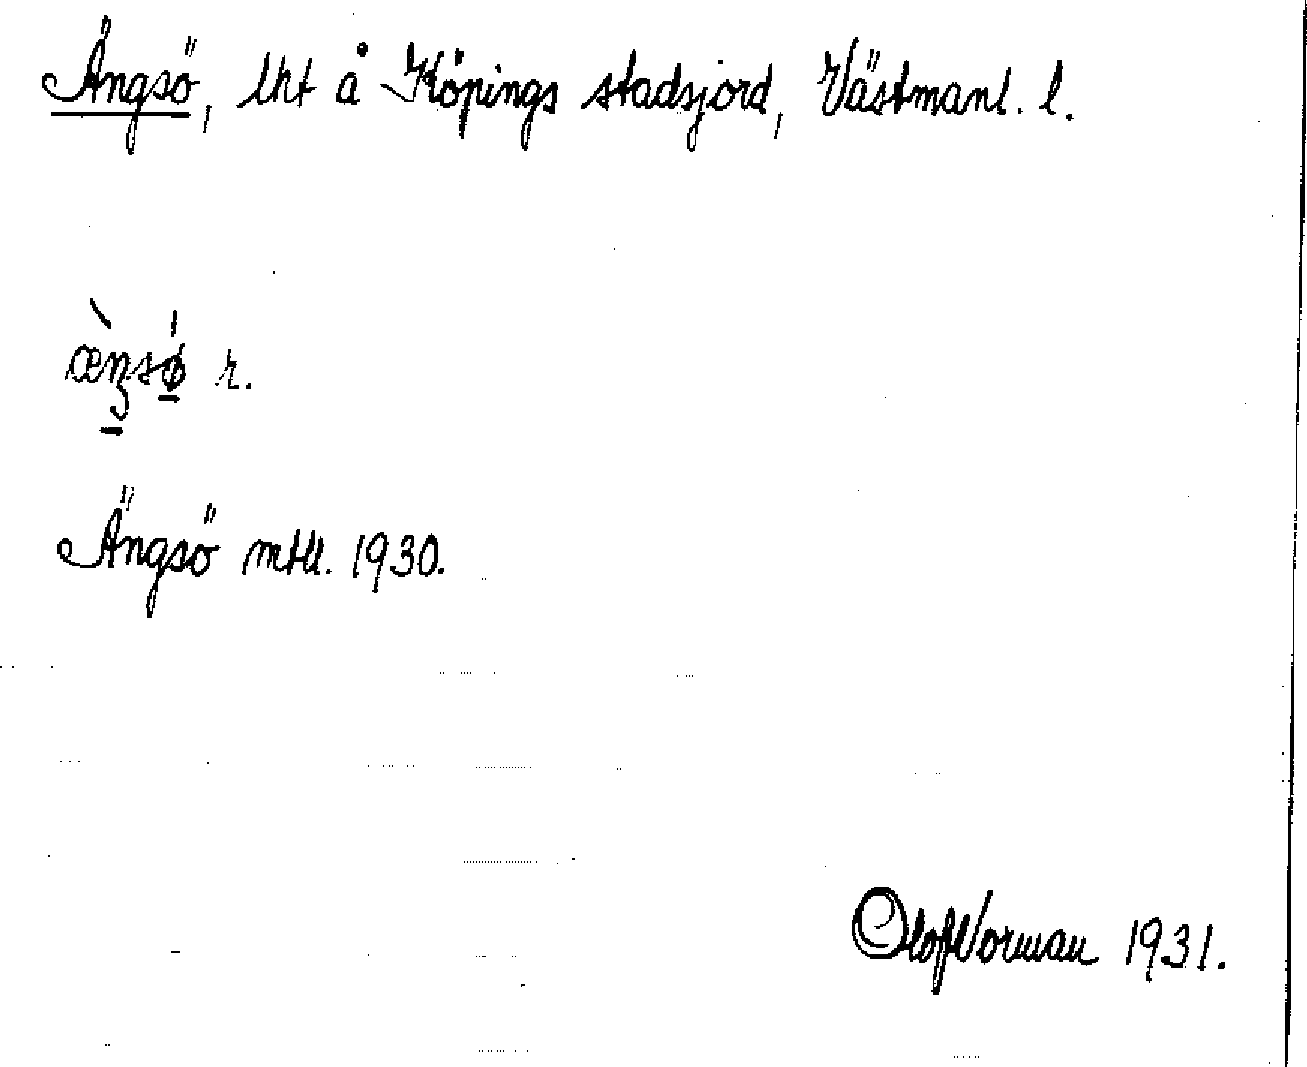 Ängsö, lht å Köpings stadsjord, Västmanl. l.
r.
Ängsö mtll. 1930.
Olof Norman 1931.